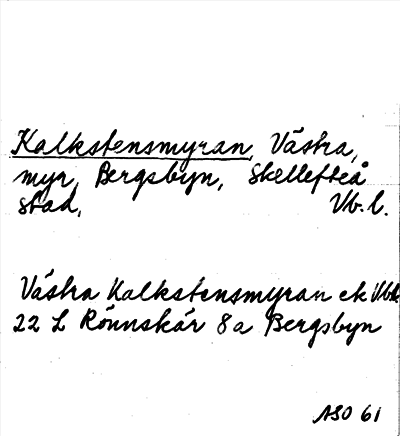 Kalkstensmyran, Västra,
myr, Bergsbyn, Skellefteå
stad, Vb. l.
Västra Kalkstensmyran ek Vbl.
22 L Rönnskär 8a Bergsbyn
ASO 61